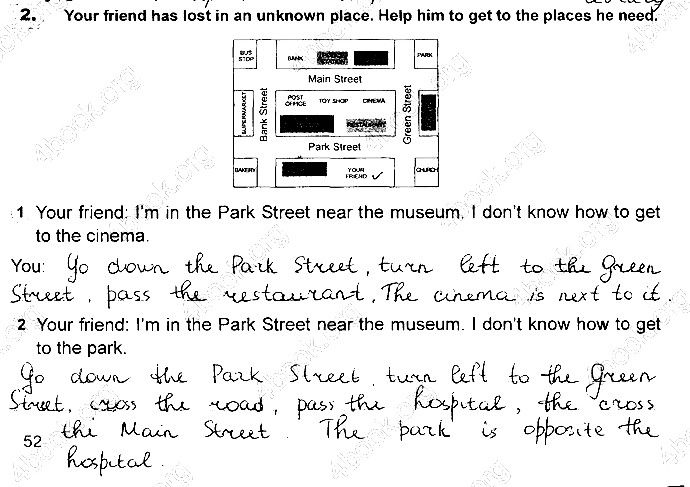 2. Your friend has lost in an unknown place. Help him to get to the places he need.
BUS STOP
BANK
PARK
Main Street
SUPERMARKET
Bank Street
POST OFFICE
TOY SHOP
CINEMA
RESTAURANT
Green Street
Park Street
BAKERY
YOUR FRIEND ✓
CHURCH
1 Your friend: I'm in the Park Street near the museum. I don't know how to get
to the cinema.
You: Go down the Park Street, turn left to the Green
Street, pass the restaurant, The cinema is next to it.
2 Your friend: I'm in the Park Street near the museum. I don't know how to get
to the park.
Go down the Park Street, turn left to the Green
Street, cross the road, pass the hospital, the cross
the Main Street. The park is opposite the
52
hospital.
4book.org